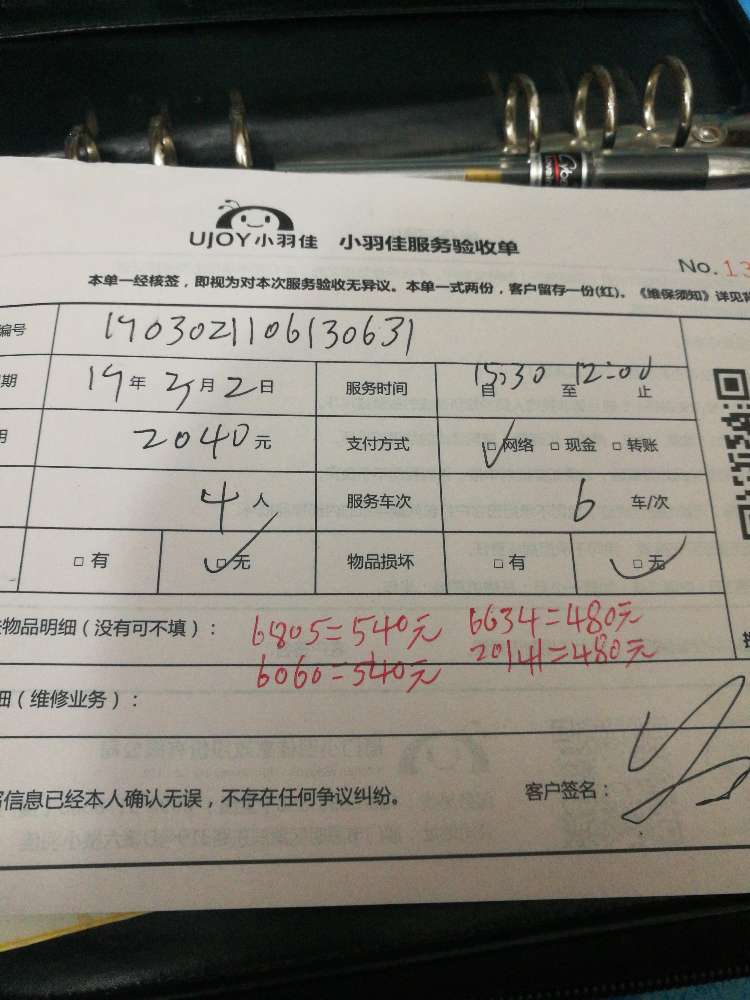 UJOY小羽佳 小羽佳服务验收单
No. 13
本单一经核签，即视为对本次服务验收无异议。本单一式两份，客户留存一份(红)。《维保须知》详见背
编号 1903021106130631
期 19年3月2日 服务时间 自15:30至12:00止
用 2040元 支付方式 □网络 □现金 □转账
4人 服务车次 6车/次
□有 □无 物品损坏 □有 □无
物品明细（没有可不填）： 6805=540元 6634=480元
6060=540元 20141=480元
细（维修业务）：
信息已经本人确认无误，不存在任何争议纠纷。 客户签名：